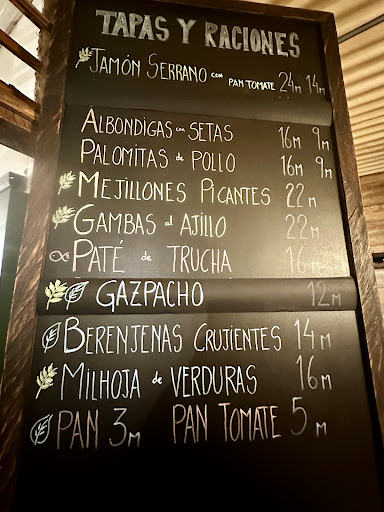 TAPAS Y RACIONES
JAMÓN SERRANO con PAN TOMATE 24M 14M
ALBONDIGAS con SETAS 16M 9M
PALOMITAS de POLLO 16M 9M
MEJILLONES PICANTES 22M
GAMBAS al AJILLO 22M
PATÉ de TRUCHA 16M
GAZPACHO 12M
BERENJENAS CRUJIENTES 14M
MILHOJA de VERDURAS 16M
PAN 3M PAN TOMATE 5M